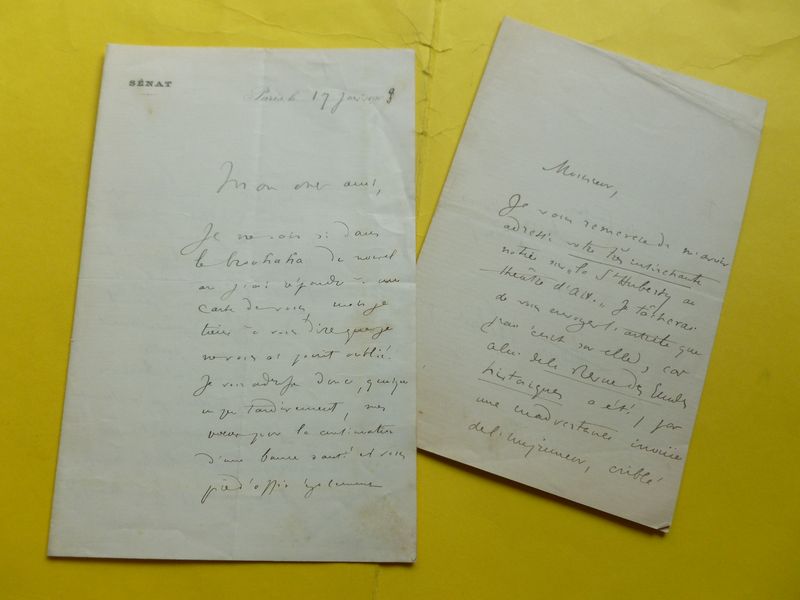 SÉNAT
Paris le 17 Janvier 9
Mon cher ami,
Je ne sais si dans
le brouhaha du nouvel
an j'ai répondu à une
carte de vous mais je
tiens à vous dire que je
ne vous ai point oublié.
Je vous adresse donc, quelque
un peu tardivement, mes
vœux pour la continuation
d'une bonne santé et vous
prie d'offrir également
Monsieur,
Je vous remercie de m'avoir
adressé votre très intéressante
notice sur la St Huberty au
théâtre d'Aix. Je tâcherai
de vous envoyer l'article que
j'ai écrit sur elle, car
celui de la Revue des Etudes
historiques a été, par
une inadvertance inouïe
de l'imprimeur, criblé